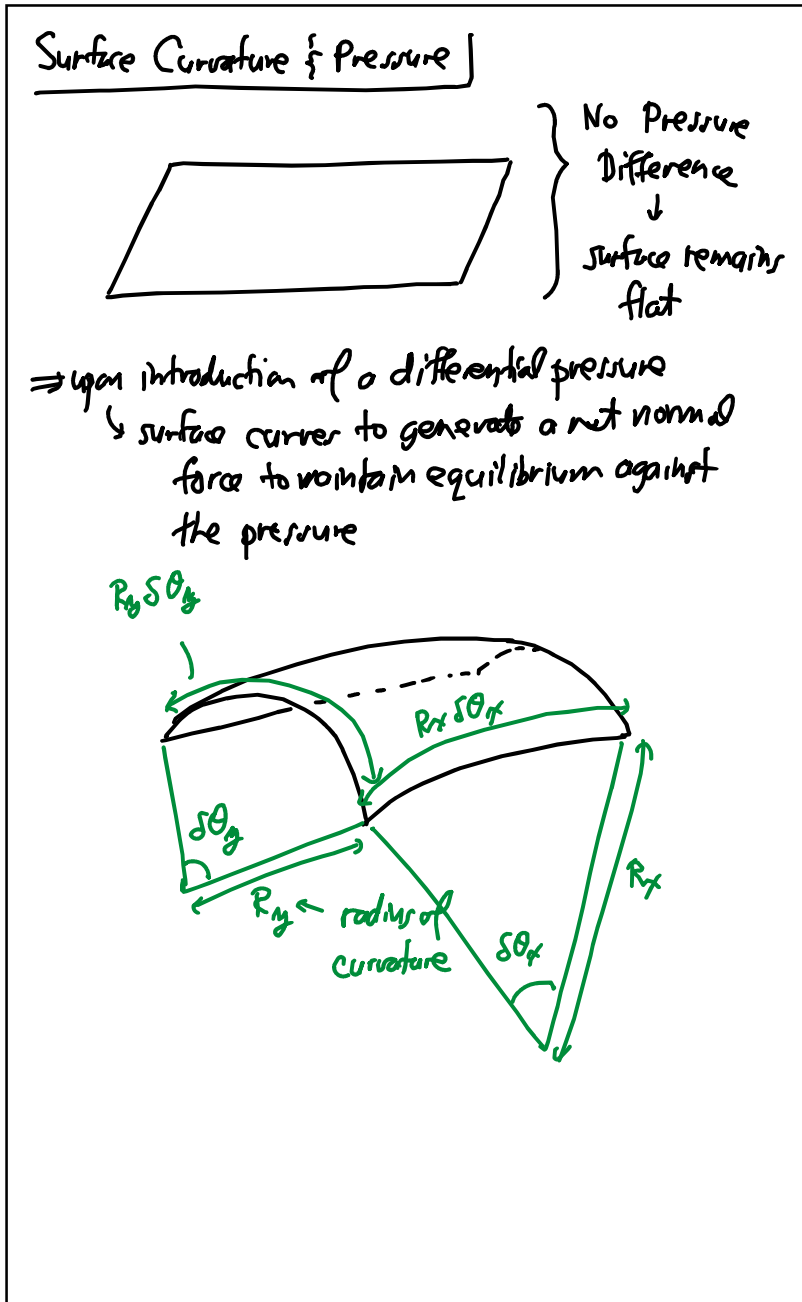 Surface Curvature & Pressure
No Pressure
Difference
↓
surface remains
flat
⇒ upon introduction of a differential pressure
↳ surface curves to generate a net normal
force to maintain equilibrium against
the pressure
R_y δθ_y
R_x δθ_x
δθ_y
R_y ← radius of
curvature
R_x
δθ_x